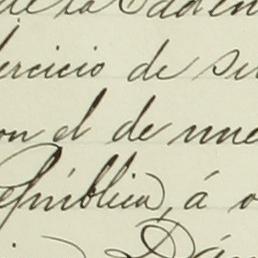 de la
ercicio de su
on el de nue
República, á